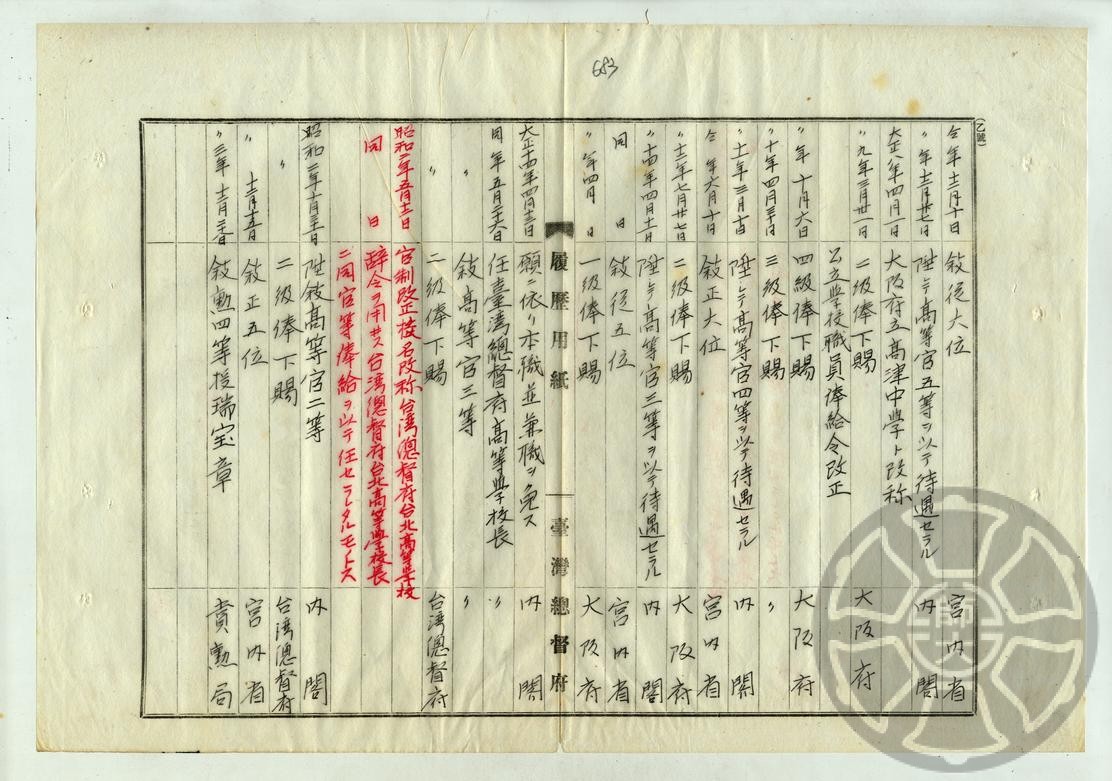 683
(乙號)
仝年十二月十日 敍従六位 宮内省
〃年十二月廿七日 陞シテ高等官五等ヲ以テ待遇セラル 内閣
大正八年四月一日 大阪府立高津中學ト改称
〃九年三月廿一日 二級俸下賜 大阪府
公立学校職員俸給令改正
〃年十月六日 四級俸下賜 大阪府
〃十年四月三十日 三級俸下賜 〃
〃十一年三月十日 陞シテ高等官四等ヲ以テ待遇セラル 内閣
仝年六月十日 敍正六位 宮内省
〃十二年七月廿七日 二級俸下賜 大阪府
〃十四年四月十一日 陞シテ高等官三等ヲ以テ待遇セラル 内閣
同日 敍従五位 宮内省
〃年四月 日 一級俸下賜 大阪府
履歴用紙 臺灣總督府
大正十四年四月十三日 願ニ依リ本職並兼職ヲ免ス 内閣
同年五月二十六日 任臺湾總督府高等学校長 〃
〃 敍高等官三等 〃
〃 二級俸下賜 台湾總督府
昭和二年五月十二日 官制改正校名改称台湾總督府台北高等学校
同日 辞令ヲ用ヰス台湾總督府台北高等学校長
ニ同官等俸給ヲ以テ任セラレタルモノトス
昭和二年十月三十一日 陞敍高等官二等 内閣
〃 二級俸下賜 台湾總督府
〃 十二月十五日 敍正五位 宮内省
〃三年十二月二十五日 敍勲四等授瑞宝章 賞勲局
師